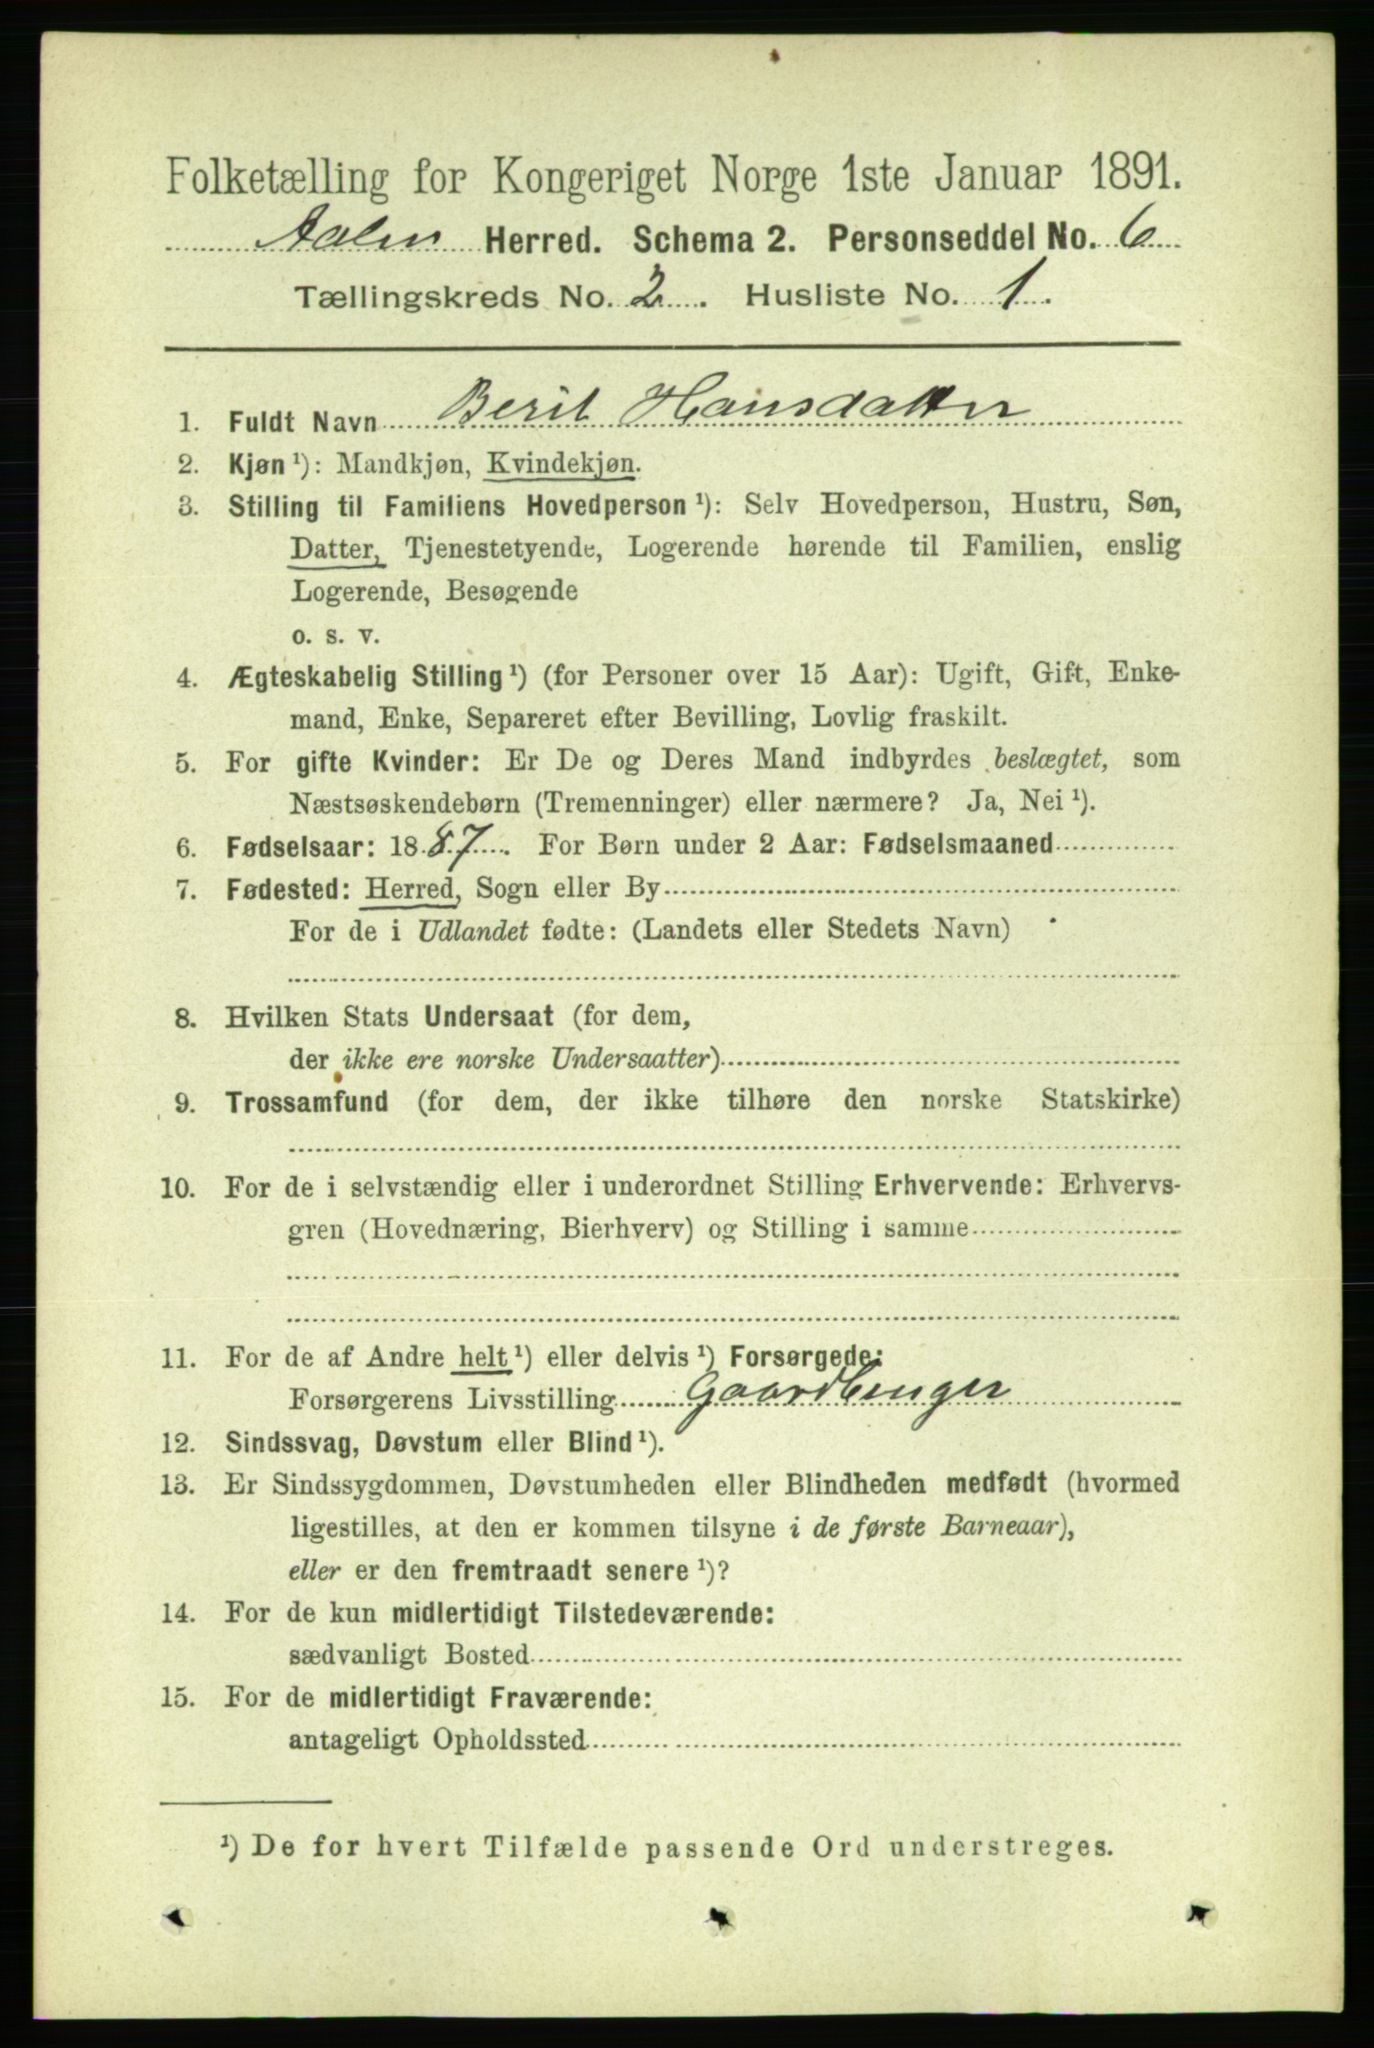 Folketælling for Kongeriget Norge 1ste Januar 1891.
Aalen Herred. Schema 2. Personseddel No. 6
Tællingskreds No. 2. Husliste No. 1.
1. Fuldt Navn Berit Hansdatter
2. Kjøn ¹): Mandkjøn, Kvindekjøn.
3. Stilling til Familiens Hovedperson ¹): Selv Hovedperson, Hustru, Søn,
Datter, Tjenestetyende, Logerende hørende til Familien, enslig
Logerende, Besøgende
o. s. v.
4. Ægteskabelig Stilling ¹) (for Personer over 15 Aar): Ugift, Gift, Enke-
mand, Enke, Separeret efter Bevilling, Lovlig fraskilt.
5. For gifte Kvinder: Er De og Deres Mand indbyrdes beslægtet, som
Næstsøskendebørn (Tremenninger) eller nærmere? Ja, Nei ¹).
6. Fødselsaar: 1887. For Børn under 2 Aar: Fødselsmaaned
7. Fødested: Herred, Sogn eller By
For de i Udlandet fødte: (Landets eller Stedets Navn)
8. Hvilken Stats Undersaat (for dem,
der ikke ere norske Undersaatter)
9. Trossamfund (for dem, der ikke tilhøre den norske Statskirke)
10. For de i selvstændig eller i underordnet Stilling Erhvervende: Erhvervs-
gren (Hovednæring, Bierhverv) og Stilling i samme
11. For de af Andre helt ¹) eller delvis ¹) Forsørgede:
Forsørgerens Livsstilling Gaardbruger
12. Sindssvag, Døvstum eller Blind ¹).
13. Er Sindssygdommen, Døvstumheden eller Blindheden medfødt (hvormed
ligestilles, at den er kommen tilsyne i de første Barneaar),
eller er den fremtraadt senere ¹)?
14. For de kun midlertidigt Tilstedeværende:
sædvanligt Bosted
15. For de midlertidigt Fraværende:
antageligt Opholdssted
¹) De for hvert Tilfælde passende Ord understreges.